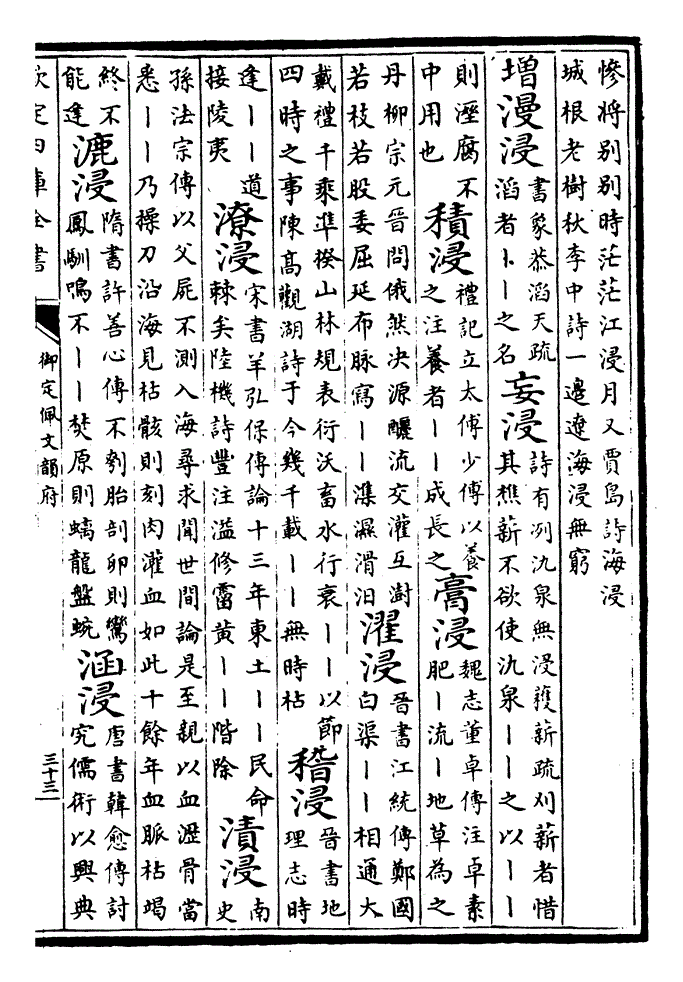 慘将别别時茫茫江浸月又賈島詩海浸
城根老樹秋李中詩一邊遼海浸無窮
增漫浸 書象恭滔天疏滔者卜丨之名 妄浸 詩有冽氿泉無浸穫薪疏刈薪者惜其樵薪不欲使氿泉丨丨之以丨丨
則溼腐不中用也 積浸 禮記立太傅少傅以養之注養者丨丨成長之 膏浸 魏志董卓傳注卓素肥丨流丨地草為之
丹柳宗元晉問俄然决源釃流交灌互澍若枝若股委屈延布脉寫丨丨濕滑汨 濯浸 晉書江統傳鄭國白渠丨丨相通大
戴禮千乘準揆山林規表衍沃畜水行衰丨丨以節四時之事陳高觀湖詩于今幾千載丨丨無時枯 稽浸 晉書地理志時
逢丨丨道接陵夷 潦浸 宋書羊弘保傳論十三年東土丨丨民命棘矣陸機詩豐注溢修霤黄丨丨階除 漬浸 南史
孫法宗傳以父屍不測入海尋求聞世間論是至親以血瀝骨當
悉丨丨乃操刀沿海見枯骸則刻肉灌血如此十餘年血脈枯竭
終不能逢 漉浸 隋書許善心傳不刳胎剖卵則鸞鳳馴鳴不丨丨焚原則螭龍盤蜿 涵浸 唐書韓愈傳討究儒術以興典
欽定四庫全書
御定佩文韻府
三十三